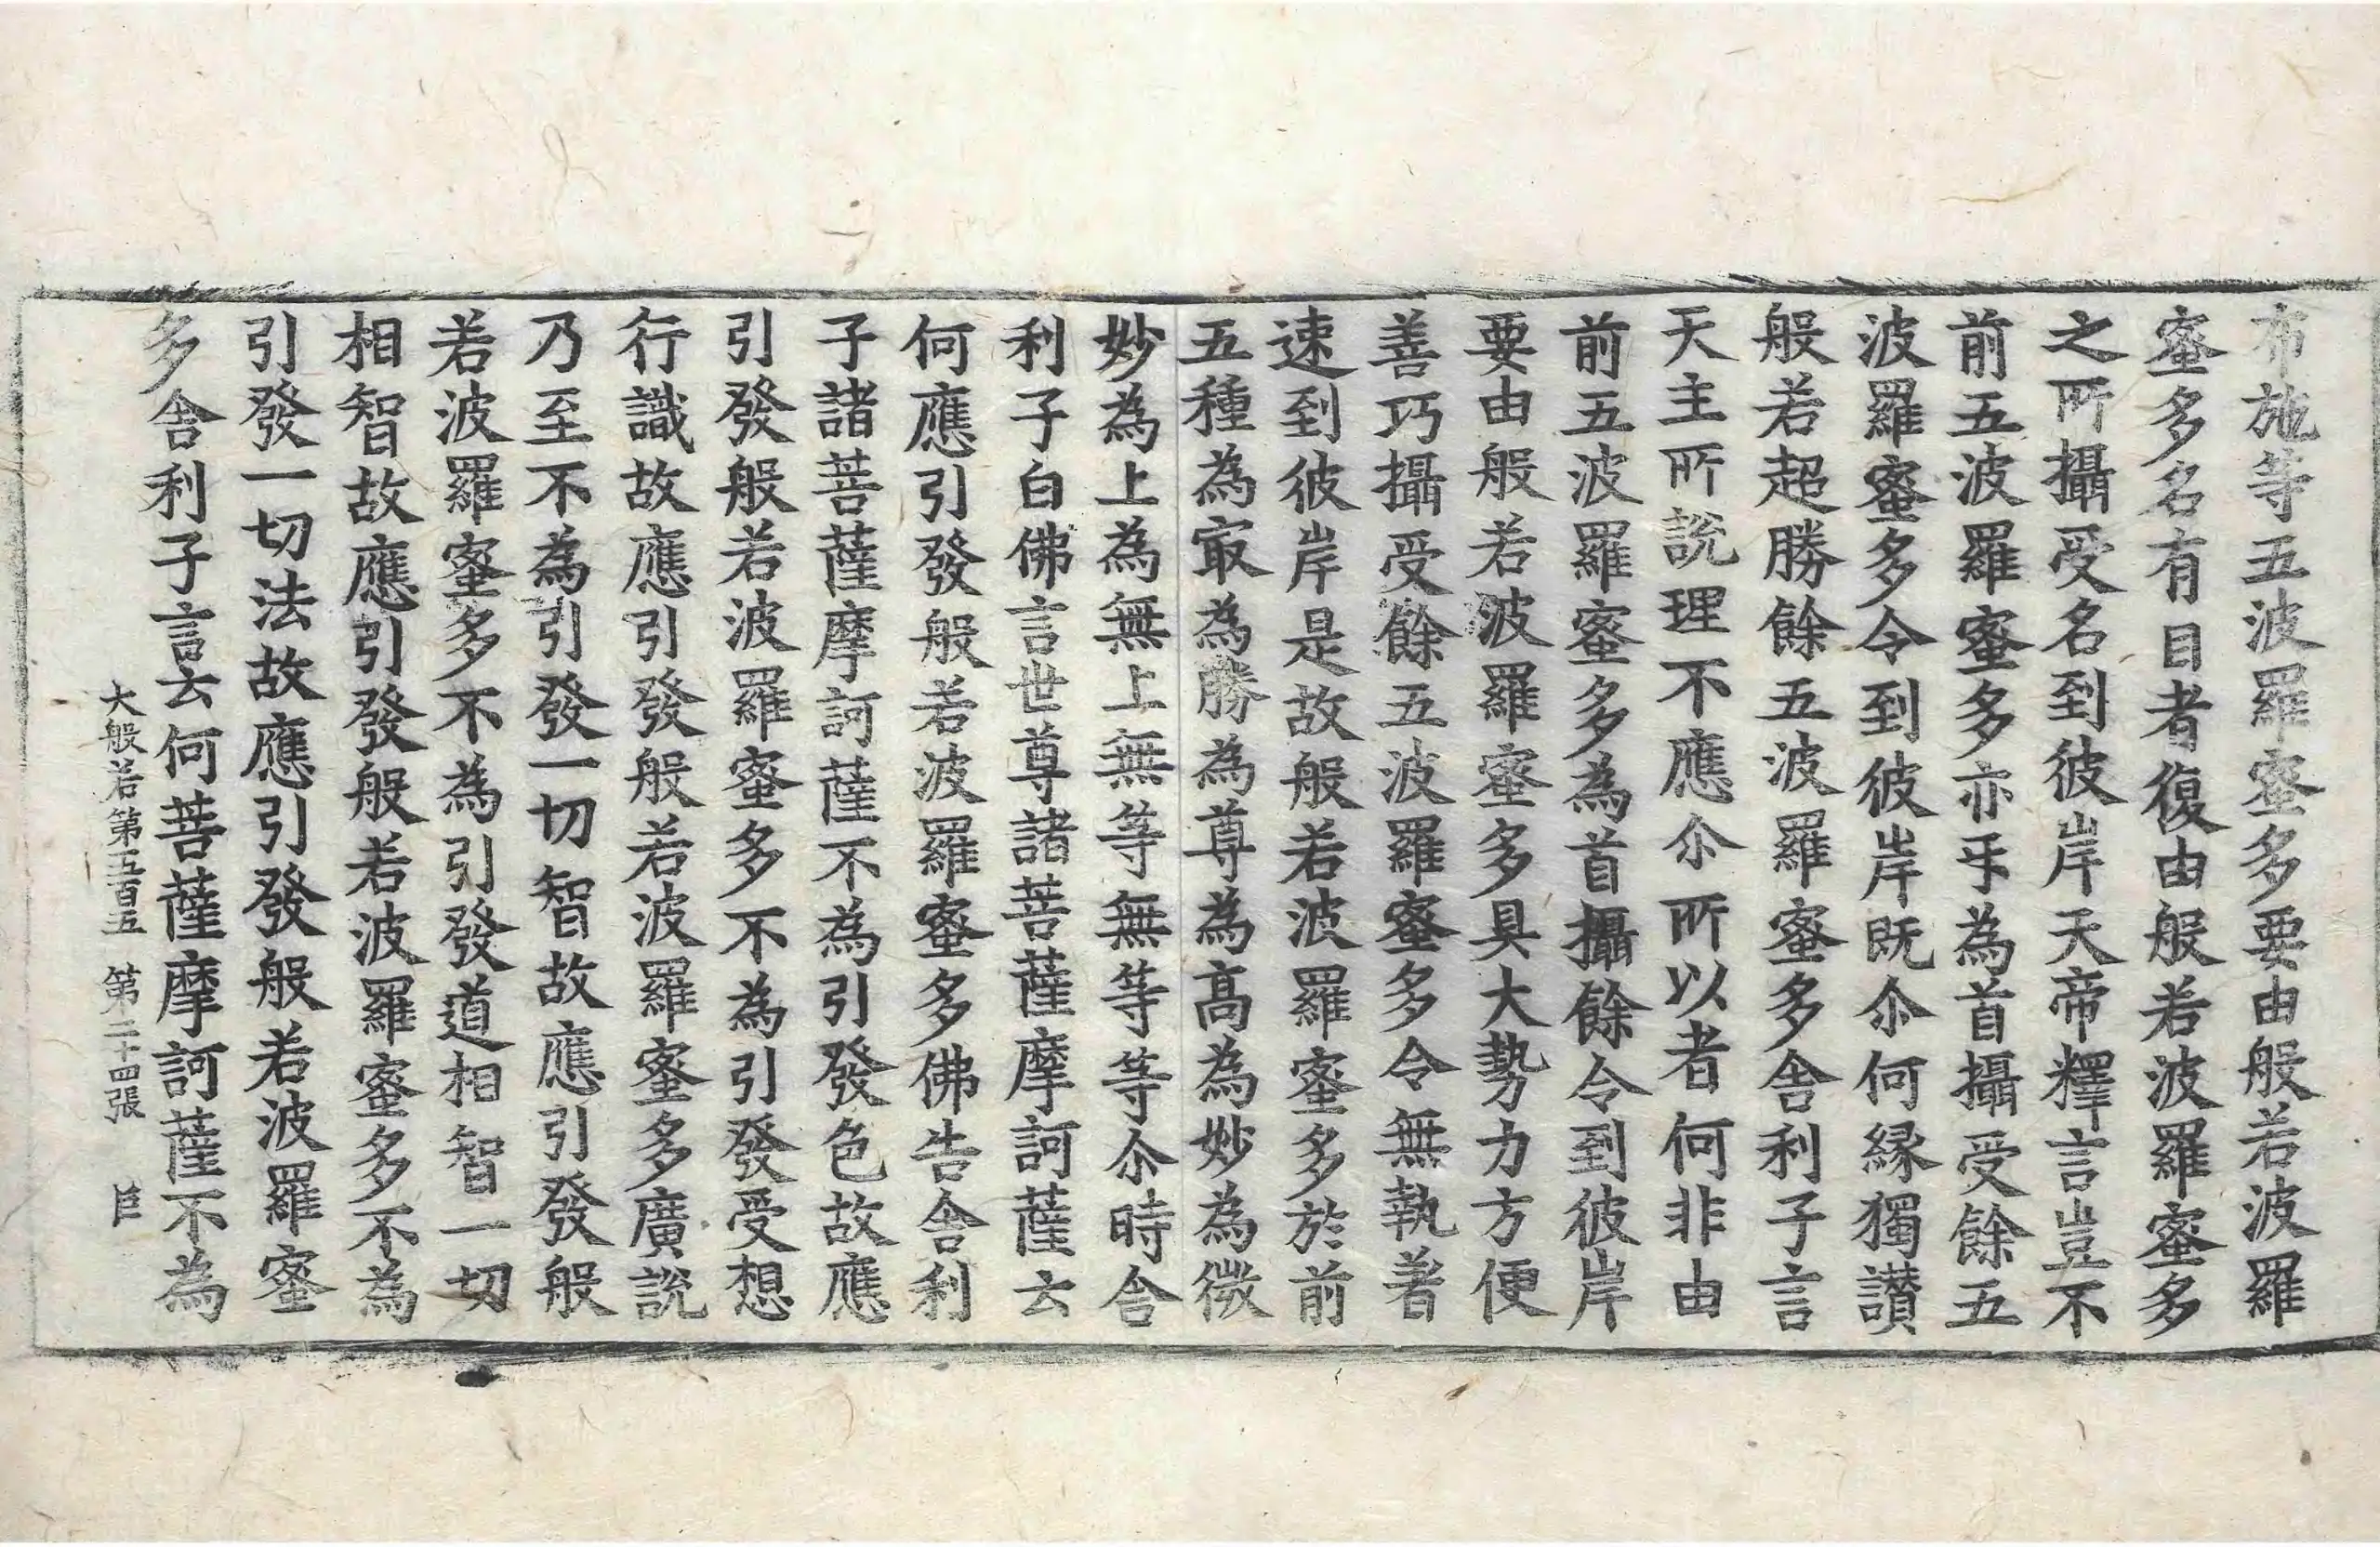 布施等五波羅蜜多要由般若波羅
蜜多名有目者復由般若波羅蜜多
之所攝受名到彼岸天帝釋言豈不
前五波羅蜜多亦互為首攝受餘五
波羅蜜多令到彼岸既尒何縁獨讃
般若超勝餘五波羅蜜多舎利子言
天主所說理不應尒所以者何非由
前五波羅蜜多為首攝餘令到彼岸
要由般若波羅蜜多具大勢力方便
善巧攝受餘五波羅蜜多令無執著
速到彼岸是故般若波羅蜜多於前
五種為㝡為勝為尊為高為妙為微
妙為上為無上無等無等等尒時舎
利子白佛言世尊諸菩薩摩訶薩云
何應引發般若波羅蜜多佛告舎利
子諸菩薩摩訶薩不為引發色故應
引發般若波羅蜜多不為引發受想
行識故應引發般若波羅蜜多廣說
乃至不為引發一切智故應引發般
若波羅蜜多不為引發道相智一切
相智故應引發般若波羅蜜多不為
引發一切法故應引發般若波羅蜜
多舎利子言云何菩薩摩訶薩不為
大般若第五百五 第二十四張